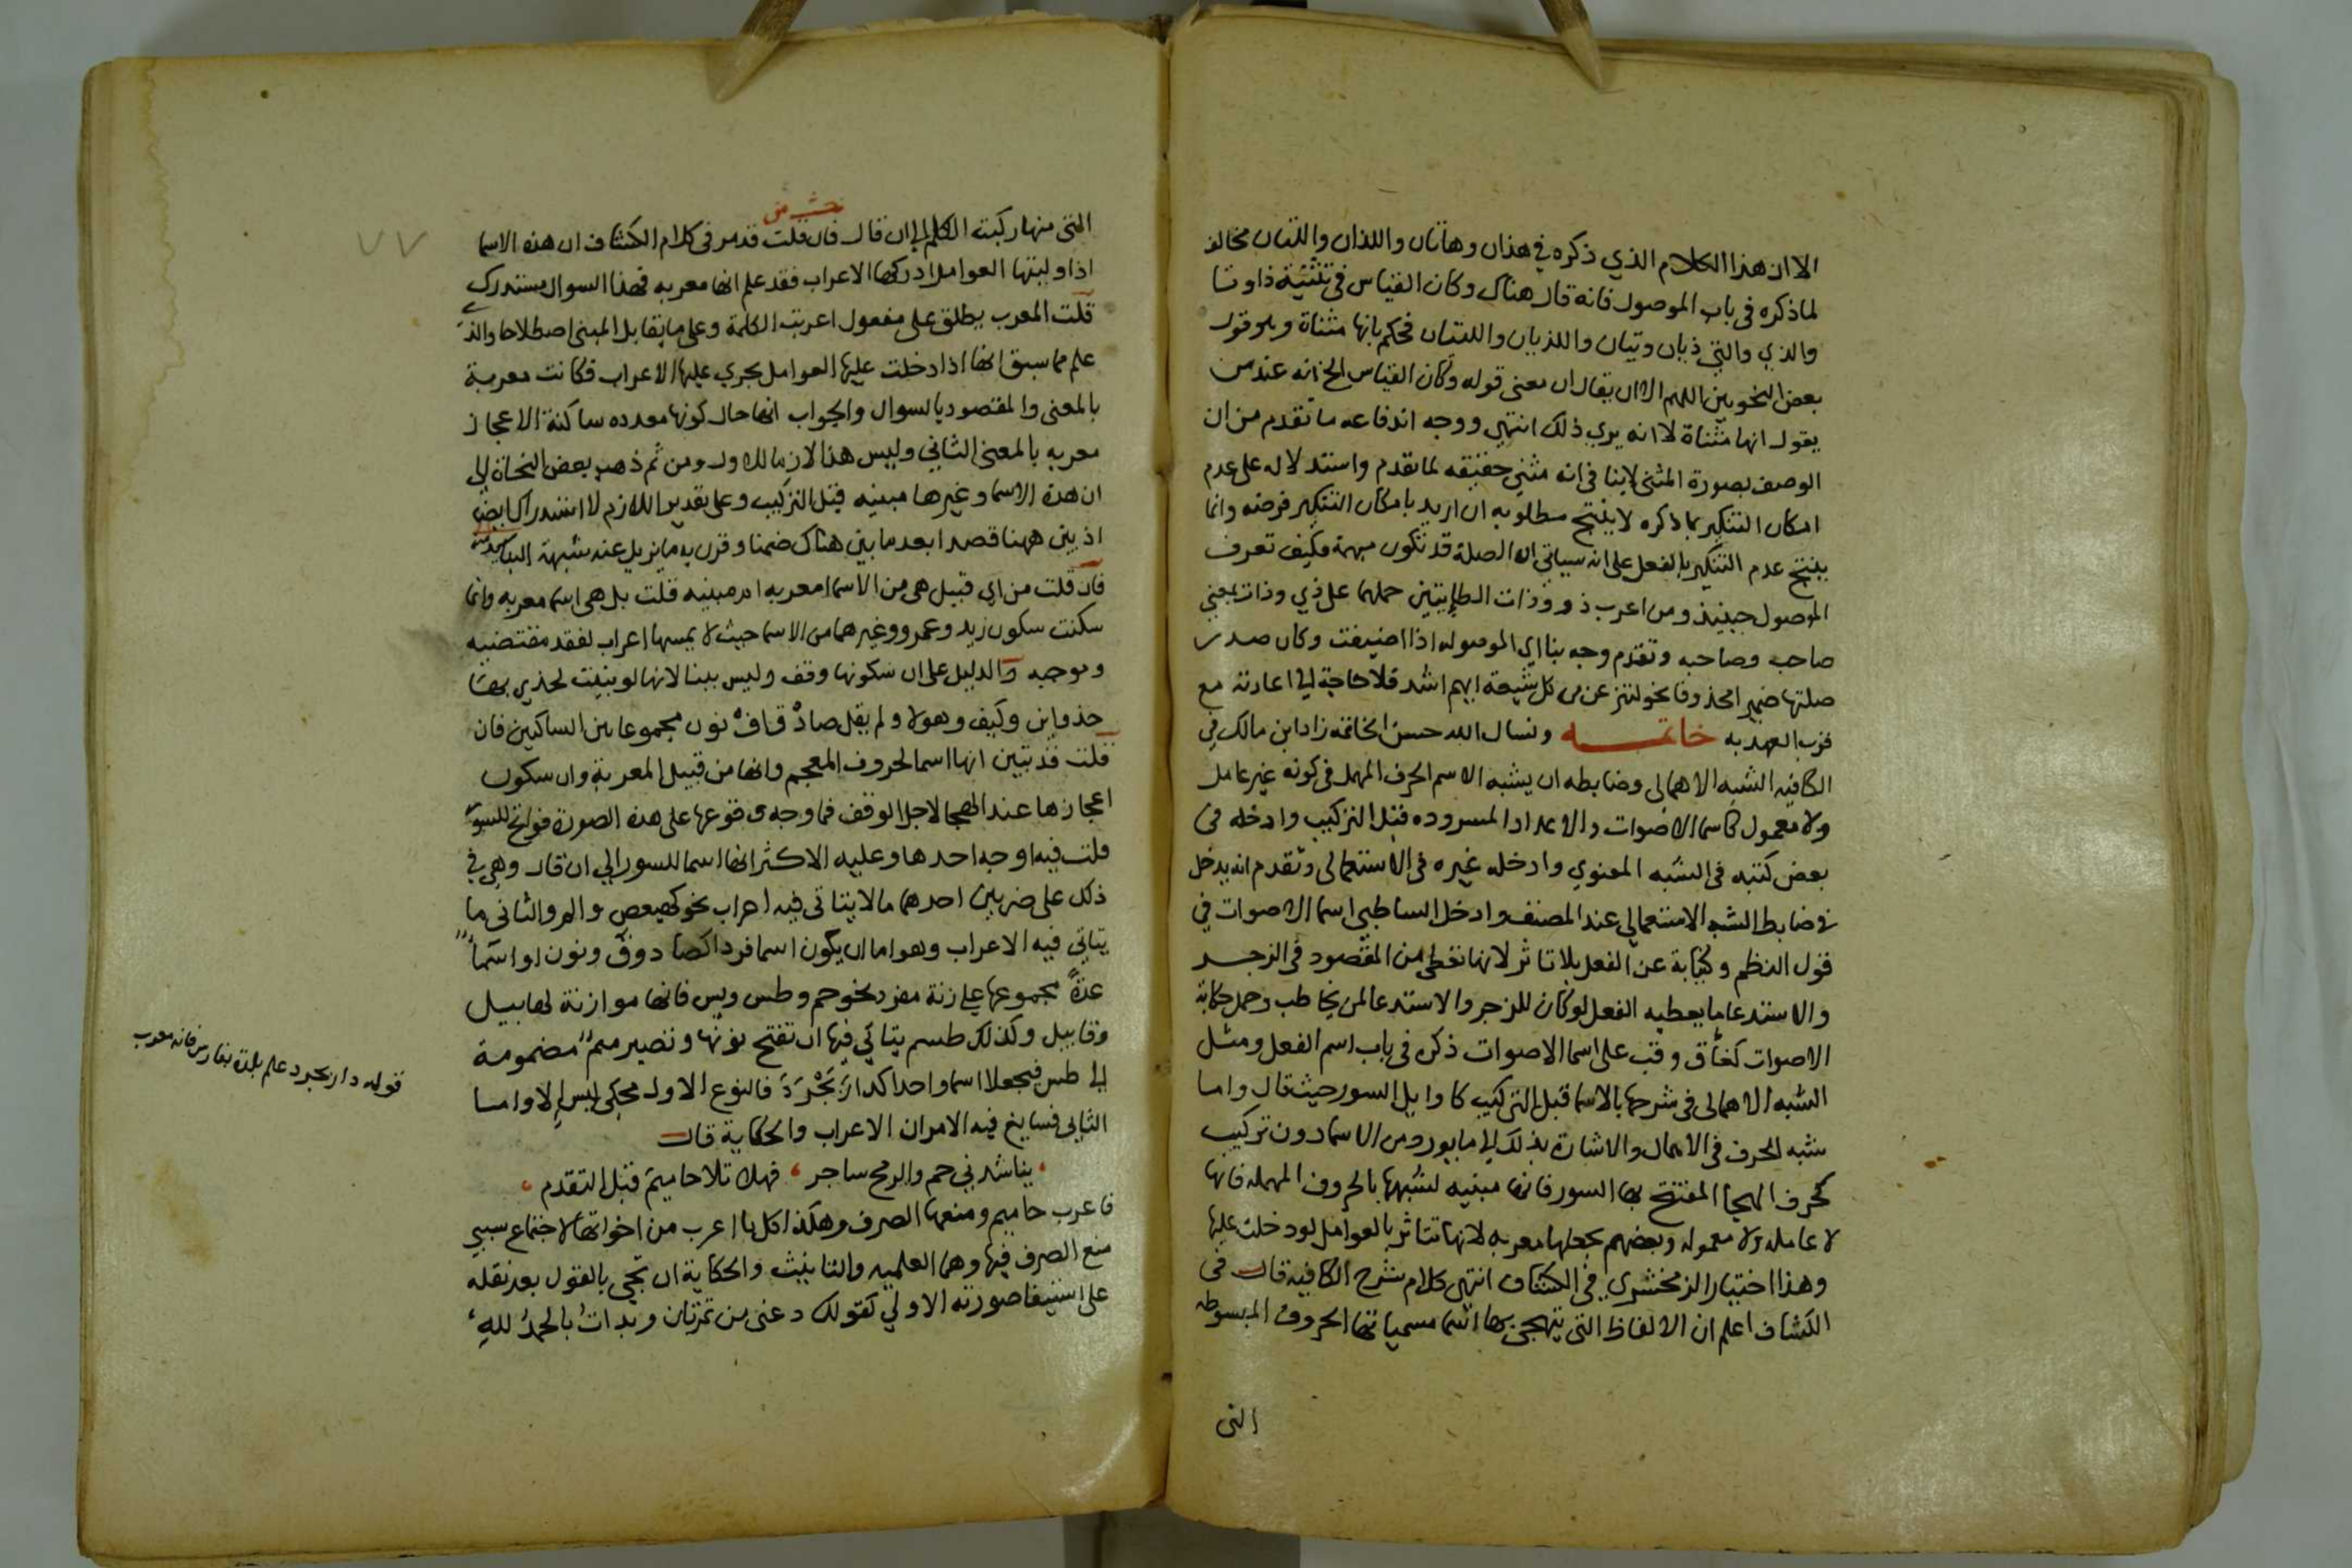 الا ان هذا الكلام الذي ذكره في هذان وهاتان واللذان واللتان مخالف
لما ذكره في باب الموصول فانه قال هناك وكان القياس في تثنية ذا وتا
والذي والتي ذيان وتيان واللذيان واللتيان فحكم بانها مثناة وهو قول
بعض النحويين اللهم الا ان يقال ان معنى قوله وكان القياس الخ انه عند من
يقول انها مثناة لا انه يري ذلك انتهي ووجه اندفاعه ما تقدم من ان
الوصف بصورة المثنى لا ينافي انه مثني حقيقه لما تقدم واستدلاله على عدم
امكان التنكير بما ذكره لا ينتج مطلوبه ان اريد بامكان التنكير فرضه وانما
ينتج عدم التنكير بالفعل على انه سياتي ان الصلة قد تكون مبهمة فكيف تعرف
الموصول حينيذ ومن اعرب ذو وذات الطايتين حملهما على ذي وذات بمعني
صاحب وصاحبه وتقدم وجه بنا اي الموصوله اذا اضيفت وكان صدر
صلتها ضمير امحذوفا نحو لننزعن من كل شيعة ايهم اشد فلا حاجة الي اعادته مع
قرب العهد به خاتمــه ونسال الله حسن الخاتمه زاد ابن مالك في
الكافيه الشبه الاهمالي وضابطه ان يشبه الاسم الحرف المهمل في كونه غير عامل
ولا معمول كاسما الاصوات والاعداد المسروده قبل التركيب وادخله في
بعض كتبه في الشبه المعنوي وادخله غيره في الاستعمالي وتقدم انه يدخل
في ضابط الشبه الاستعمالي عند المصنف وادخل الشاطبي اسما الاصوات في
قول النظم وكنيابة عن الفعل بلا تاثر لانها تعطي من المقصود في الزجر
والاستدعا ما يعطيه الفعل لو كان للزجر والاستدعا لمن يخاطب وحمل حكاية
الاصوات كغاق وقب على اسما الاصوات ذكره في باب اسم الفعل ومثل
الشبه الاهمالي في شرحها بالاسما قبل التركيب كاوايل السور حيث قال واما
شبه الحرف في الاهمال والاشارة بذلك الي ما يورد من الاسما دون تركيب
كحرف الهجا المفتتح بها السور فانها مبنيه لشبهها بالحروف المهمله فانها
لا عامله ولا معموله وبعضهم يجعلها معربه لانها تتاثر بالعوامل لو دخلت عليها
وهذا اختيار الزمخشري في الكشاف انتهي كلام شرح الكافيه قال في
الكشاف اعلم ان الالفاظ التي يتهجى بها اسما مسمياتها الحروف المبسوطه
التى
٧٧
التى منها ركبت الكلم الي ان قال فان قلت قد مر في كلام الكشاف ان هذه الاسما
اذا وليتها العوامل ادركها الاعراب فقد علم انها معربه فهذا السوال مستدرك
قلت المعرب يطلق على مفعول اعربت الكلمة وعلى ما يقابل المبنى اصطلاحا والذ
علم مما سبق انها اذا دخلت عليها العوامل يجري عليها الاعراب فكانت معربة
بالمعنى والمقصود بالسوال والجواب انها حال كونها معدده ساكنة الاعجاز
معربه بالمعنى الثاني وليس هذا لازما للاول ومن ثم ذهب بعض النحاة الي
ان هذه الاسما وغيرها مبنيه قبل التركيب وعلى تقدير اللازم لا استدراك ايضا
اذ بين ههنا قصدا بعد ما بين هناك ضمنا وقرن به ما يزيل عنه شبهة البنا
فان قلت من اي قبيل هى من الاسما معربه ام مبنيه قلت بل هى اسما معربه وانما
سكنت سكون زيد وعمرو وغيرهما من الاسما حيث لا يمسها اعراب لفقد مقتضيه
وموجبه والدليل على ان سكونها وقف وليس ببنا لانها لو بنيت لحذي بها
حذو اين وكيف وهولا ولم يقل صاد قاف نون مجموعا بين الساكنين فان
قلت قد تبين انها اسما لحروف المعجم وانها من قبيل المعربة وان سكون
اعجازها عند الهجا لاجل الوقف فما وجه وقوعها على هذه الصورة فواتح للسور
قلت فيه اوجه احدها وعليه الاكثر انها اسما للسور الي ان قال وهي في
ذلك على ضربين احدهما ما لا يتاتى فيه اعراب نحو كهيعص والمر والثاني ما
يتاتي فيه الاعراب وهو اما ان يكون اسما فردا كصاد وق ونون او اسما
عدة مجموعها على زنة مفرد نحو حم وطس ويس فانها موازنة لهابيل
وقابيل وكذلك طسم يتاتي فيها ان تفتح نونها وتصير ميم مضمومة
الي طس فيجعلا اسما واحدا كدارَبْجَرْدَ فالنوع الاول محكي ليس الا واما
الثاني فسايغ فيه الامران الاعراب والحكاية قال
يناشدني حم والرمح ساجر ، فهلا تلا حاميم قبل التقدم
فاعرب حاميم ومنعها الصرف وهكذا كل ما اعرب من اخواتها لاجتماع سببي
منع الصرف فيها وهما العلميه والتانيث والحكاية ان تجي بالقول بعد نقله
على استيفا صورته الاولي كقولك دعنى من تمرتان وبدات بالحمدُ للهِ
قوله دارابجرد علم بلدة بفارس فانه معرب